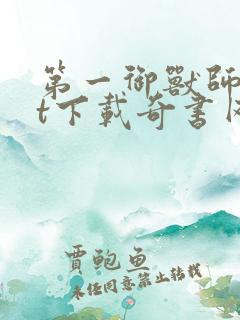 第一御獸師
t下載奇書
賈鲍鱼
未任同意禁止轉載